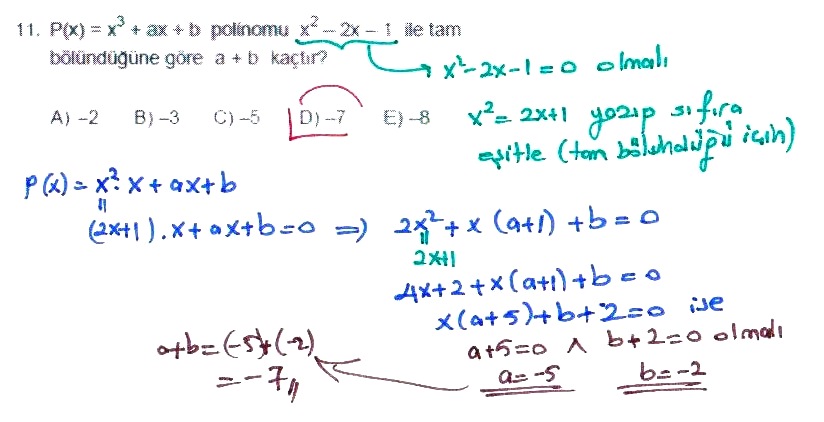 11. P(x) = x³ + ax + b polinomu x² – 2x – 1 ile tam
bölündüğüne göre a + b kaçtır?
x²-2x-1=0 olmalı
A) –2 B) –3 C) –5 D) –7 E) –8
x²= 2x+1 yazıp sıfıra
eşitle (tam bölündüğü için)
P(x) = x². x + ax+b
(2x+1).x + ax+b=0 ⇒ 2x²+x(a+1)+b=0
2x+1
4x+2+x(a+1)+b=0
x(a+5)+b+2=0 ise
a+b=(-5)+(-2)
a+5=0 ∧ b+2=0 olmalı
=-7,,
a=-5 b=-2